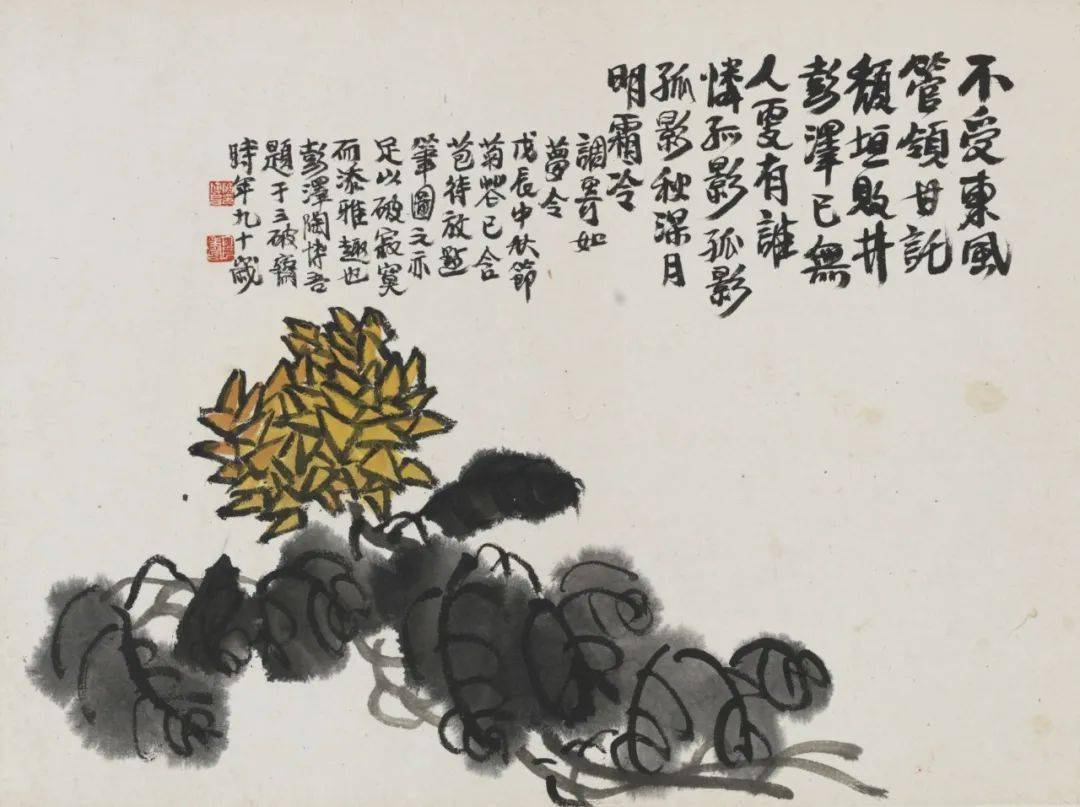 不受東風
管領甘託
頹垣敗井
彭澤已無
人更有誰
憐孤影孤影
孤影秋深月
明霜冷
調寄如
夢令
戊辰中秋節
菊花已含
苞待放點
筆圖之亦
足以破寂寞
而添雅趣也
彭澤陶博吾
題于三破齋
時年九十歲